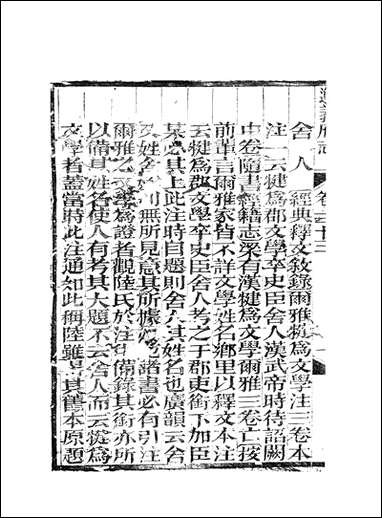 卷二十三
舍人 經典釋文敘錄爾雅犍爲文學注三卷本
注一云犍爲郡文學卒史臣舍人漢武帝時待詔闕
中卷隨書經籍志梁有漢犍爲文學爾雅三卷亡按
前輩言爾雅家皆不詳文學姓名鄉里以釋文本注
云犍爲郡文學卒史臣舍人考之于郡吏銜下加臣
某必其上此注時自題則舍人其姓名也廣韻云舍
姓 無所見意其所據 諸書必有引注
爾雅 文學爲證者觀陸氏於注 備錄其銜亦所
以備其姓名使人有考其大題不云舍人而云犍爲
文學者蓋當時此注通如此稱陸雖 其舊本原題